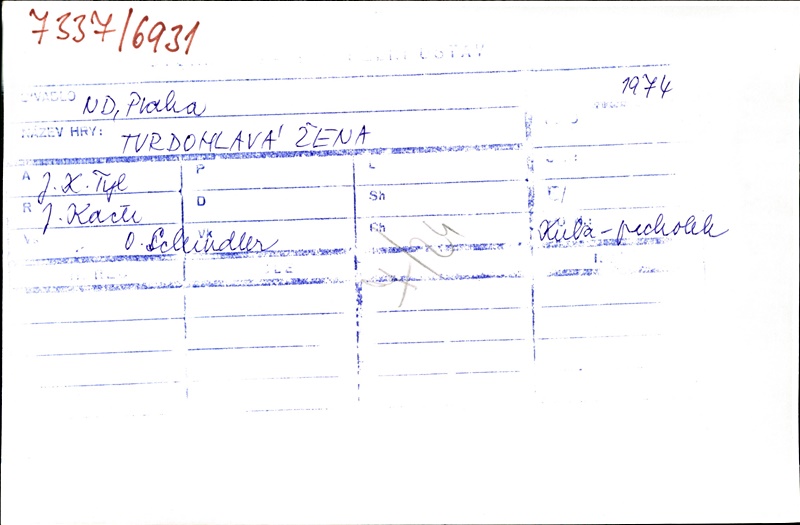 7337/6931
ÚSTAV
DIVADLO ND, Praha 1974
NÁZEV HRY: TVRDOHLAVÁ ŽENA
A J. K. Tyl P L
R J. Kačer D Sh
V. O. Schindler Vk Ch Kuba - pacholek